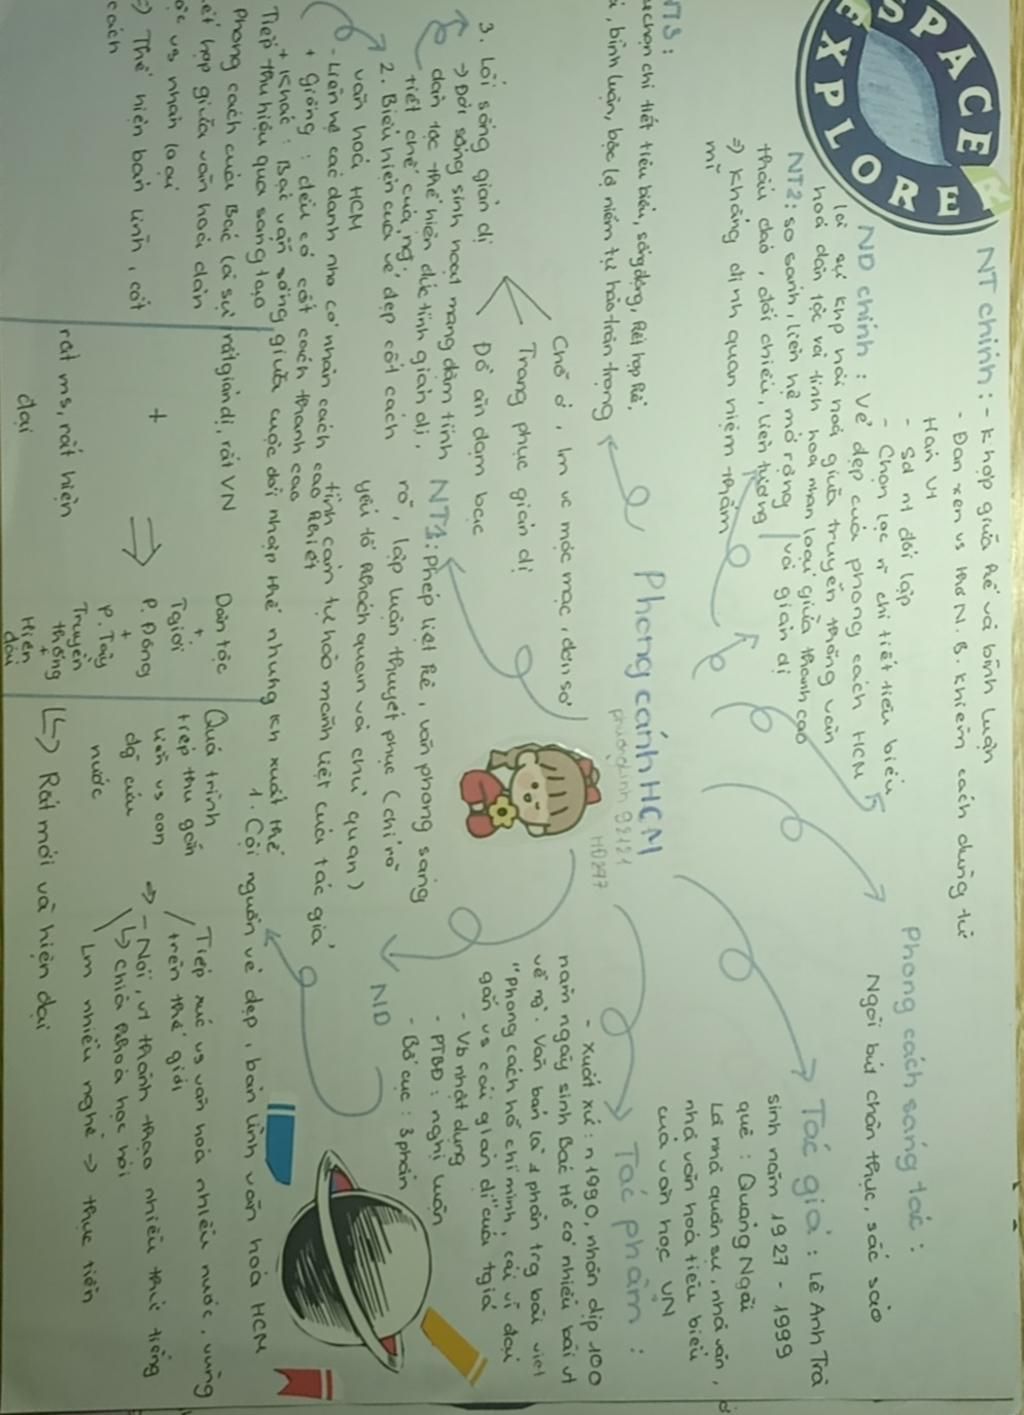 SPACE EXPLORER
NT chính: - K hợp giữa kể và bình luận
- Đan xen vs thơ N.B. Khiêm cách dùng từ
Hán Vt
- Sd nt đối lập
- Chọn lọc n~ chi tiết tiêu biểu
ND chính: Vẻ đẹp của phong cách HCM
là sự khp hài hoà giữa truyền thống văn
hoá dân tộc và tinh hoa nhân loại giữa thanh cao
và giản dị
NT2: so sánh, liên hệ mở rộng
thấu đáo, đối chiếu, liên tưởng
=> khẳng định quan niệm thẩm
mĩ
NT3:
chọn chi tiết tiêu biểu, sống động, kết hợp kể,
, bình luận, bộc lộ niềm tự hào trân trọng
Phong cánh HCM
phuongdinh 92121
HD297
Phong cách sáng tác:
Ngòi bút chân thực, sắc sảo
Tác giả: Lê Anh Trà
sinh năm 1927 - 1999
quê: Quảng Ngãi
Là nhà quân sự, nhà văn,
nhà văn hoá tiêu biểu
của văn học VN
Tác phẩm:
- Xuất xứ: n1990, nhân dịp 100
năm ngày sinh Bác Hồ có nhiều bài vt
về ng`. Văn bản là 1 phần trg bài viết
"Phong cách hồ chí minh, cái vĩ đại
gắn vs cái giản dị" của tgiả
- Vb nhật dụng
- PTBĐ: nghị luận
- Bố cục: 3 phần
ND
1. Cội nguồn vẻ đẹp, bản lĩnh văn hoá HCM
Tiếp xúc vs văn hoá nhiều nước, vùng
trên thế giới
=> - Nói, vt thành thạo nhiều thứ tiếng
↳ chìa khoá học hỏi
Lm nhiều nghề -> thực tiễn
Quá trình
tiếp thu gắn
liền vs con
đg cứu
nước
↳ Rất mới và hiện đại
Dân tộc
+
Tgiới
P. Đông
+
P. Tây
Truyền
thống
+
Hiện
đại
rất giản dị, rất VN
+
rất ms, rất hiện
đại
2. Biểu hiện của vẻ đẹp cốt cách
văn hoá HCM
- Liên hệ các danh nho có nhân cách cao khiết
+ giống: đều có cốt cách thanh cao
+ Khác: Bác vẫn sống giữa cuộc đời nhập thế nhưng kh xuất thế
Tiếp thu hiệu quả sáng tạo
Phong cách của Bác là sự
kết hợp giữa văn hoá dân
tộc vs nhân loại
=> Thể hiện bản lĩnh, cốt
cách
3. Lối sống giản dị
-> Đời sống sinh hoạt mang đậm tính
dân tộc thể hiện đức tính giản dị,
tiết chế của ng`
Chỗ ở, lm vc mộc mạc, đơn sơ
Trang phục giản dị
Đồ ăn đạm bạc
NT1: phép liệt kê, văn phong sáng
rõ, lập luận thuyết phục (chỉ rõ
yếu tố khách quan và chủ quan)
tình cảm tự hào mãnh liệt của tác giả